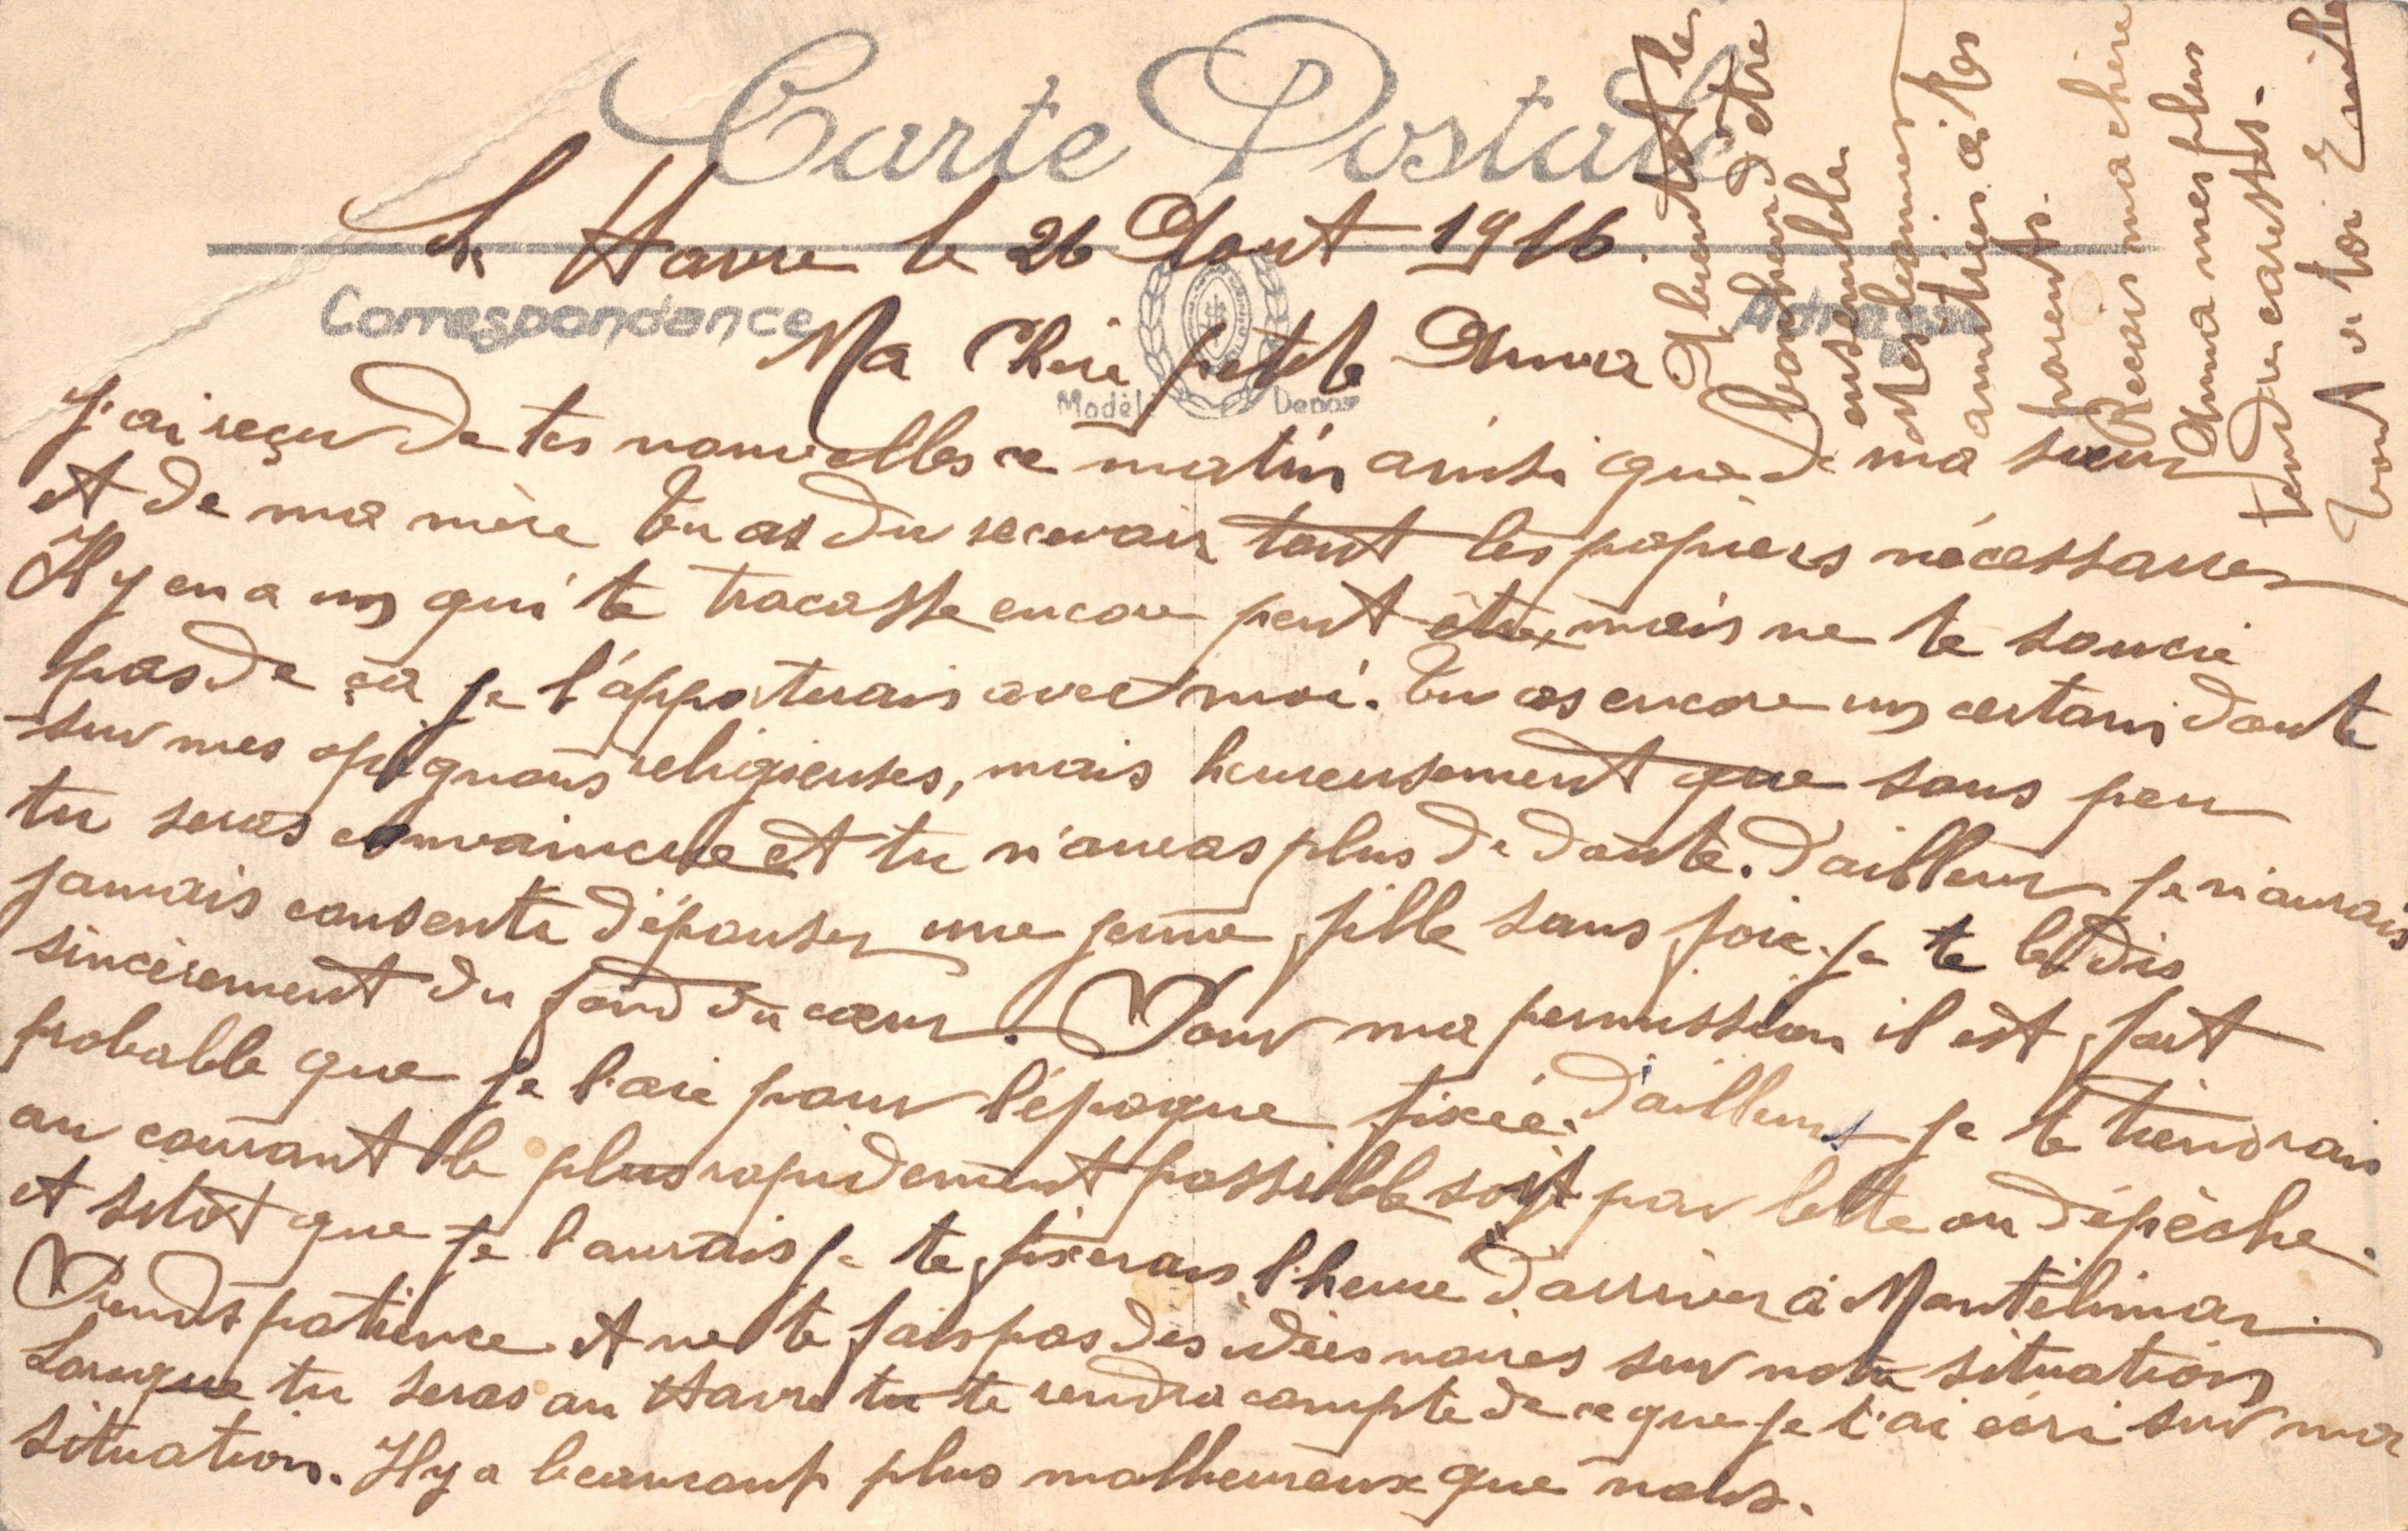 Carte Postale
Le Havre le 26 Aout 1916.
Correspondance
Adresse
Modèle Déposé
Ma Chère petite Anna
J'ai reçu de tes nouvelles ce matin ainsi que de ma sœur
et de ma mère tu as du recevoir tout les papiers nécessaires
Il y en a un qui te tracasse encore peut être, mais ne te soucie
pas de ça je l'apporterais avec moi. Tu as encore un certain doute
sur mes opignons religieuses, mais heureusement que sous peu
tu seras convaincue et tu n'auras plus de doute. D'ailleurs je n'aurais
jamais consenti d'épouser une jeune fille sans foie. je te le dis
sincèrement du fond du cœur. Pour ma permission il est fort
probable que je l'aie pour l'époque fixée. D'ailleurs je te tiendrais
au courant le plus rapidement possible soit par lettre ou dépèche.
et sitôt que je l'aurais je te fixerais l'heure d'arriver à Montélimar.
Prends patience et ne te fais pas des idées noires sur notre situation
Lorsque tu seras au Havre tu te rendra compte de ce que je t'ai écri sur ma
situation. Il y a beaucoup plus malheureux que nous.
A bientôt le
bonheur d'être
ensemble.
amitiés à tes
parents.
Reçois ma chère
Anna mes plus
tendres caresses.
Tout à toi Emile